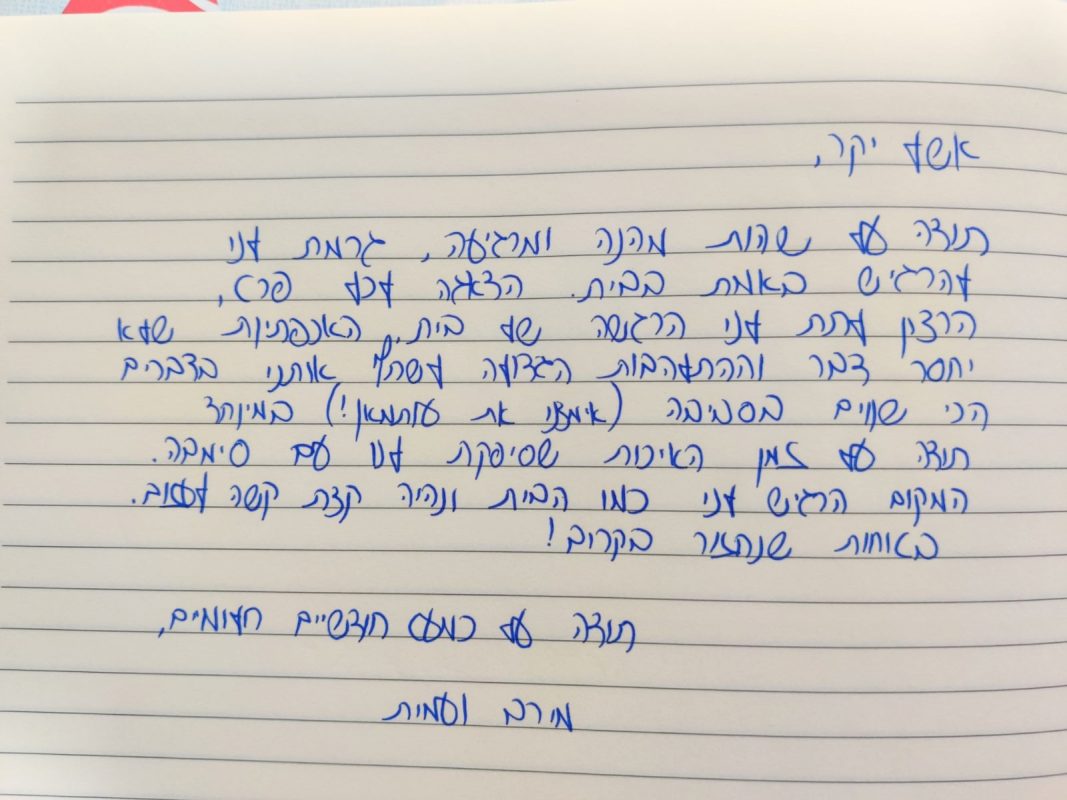 אשל יקר,
תודה על שהות מהנה ומרגיעה, גרמת לנו
להרגיש באמת בבית. הדאגה לכל פרט,
הרצון לתת לנו הרגשה של בית, האכפתיות שלא
יחסר דבר וההתלהבות הגדולה לשתף אותנו בדברים
הכי שווים בסביבה (אימצנו את עותמאן!) במיוחד
תודה על זמן האיכות שסיפקת לנו עם סימבה.
המקום הרגיש לנו כמו הבית ונהיה קצת קשה לעזוב.
באוחות שנחזור בקרוב!
תודה על כמעט חודשיים חלומיים,
מירב ועמית